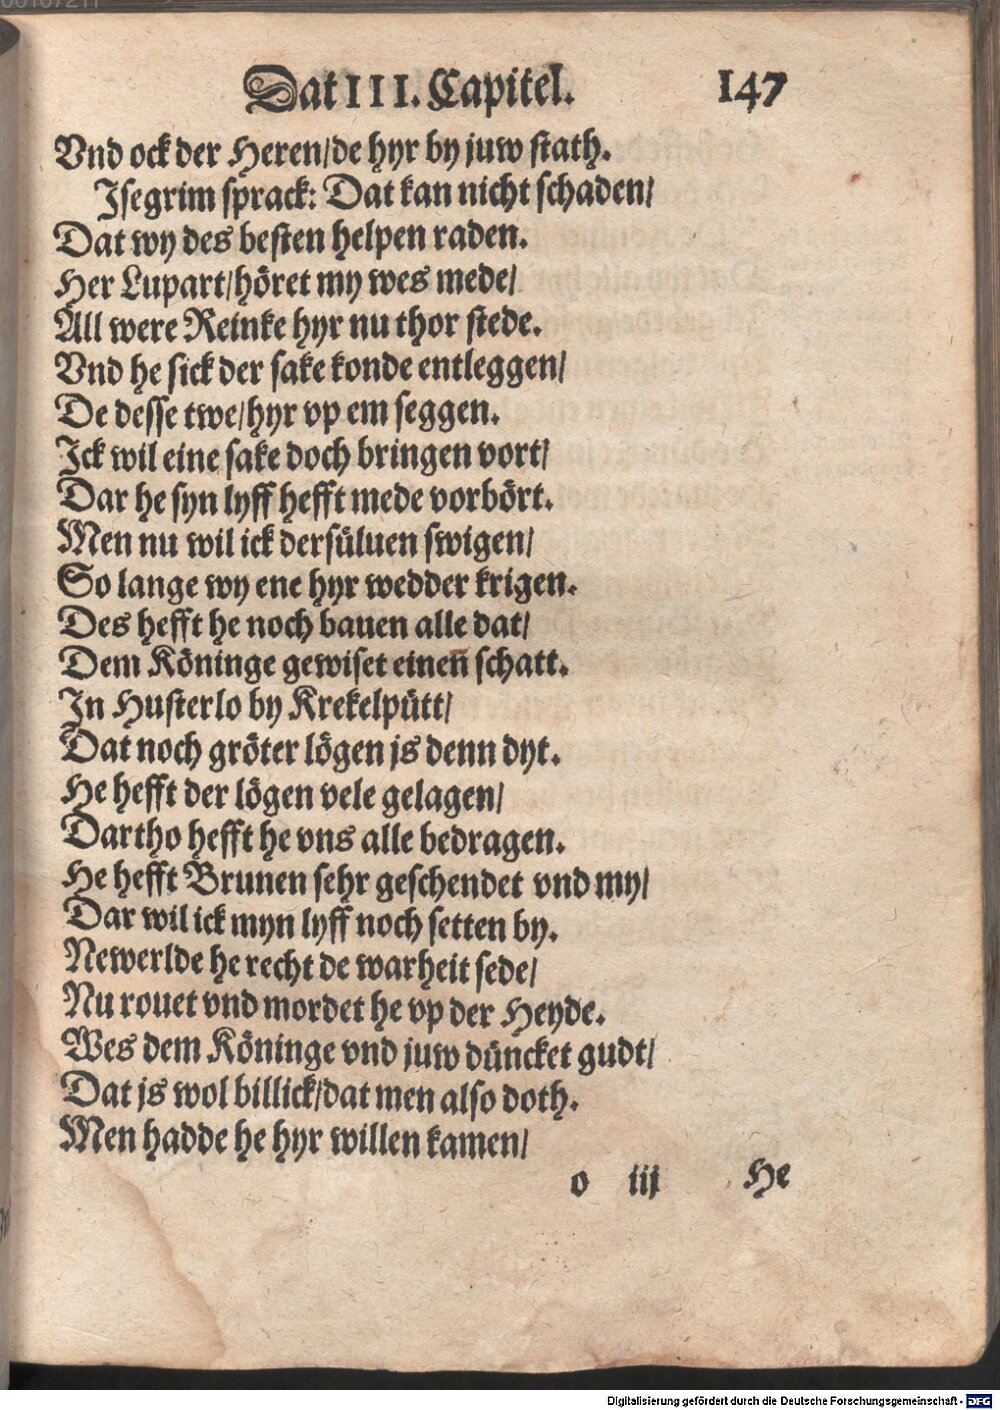 Dat III. Capitel. 147
Vnd ock der Heren/de hyr by juw stath.
Isegrim sprack: Dat kan nicht schaden/
Dat wy des besten helpen raden.
Her Lupart/höret my wes mede/
All were Reinke hyr nu thor stede.
Vnd he sick der sake konde entleggen/
De desse twe/hyr vp em seggen.
Ick wil eine sake doch bringen vort/
Dar he syn lyff hefft mede vorbört.
Men nu wil ick dersüluen swigen/
So lange wy ene hyr wedder krigen.
Des hefft he noch bauen alle dat/
Dem Köninge gewiset einen̄ schatt.
In Husterlo by Krekelpütt/
Dat noch gröter lögen js denn dyt.
He hefft der lögen vele gelagen/
Dartho hefft he vns alle bedragen.
He hefft Brunen sehr geschendet vnd my/
Dar wil ick myn lyff noch setten by.
Newerlde he recht de warheit sede/
Nu rouet vnd mordet he vp der Heyde.
Wes dem Köninge vnd juw düncket gudt/
Dat js wol billick/dat men also doth.
Men hadde he hyr willen kamen/
o iij He
Digitalisierung gefördert durch die Deutsche Forschungsgemeinschaft - DFG